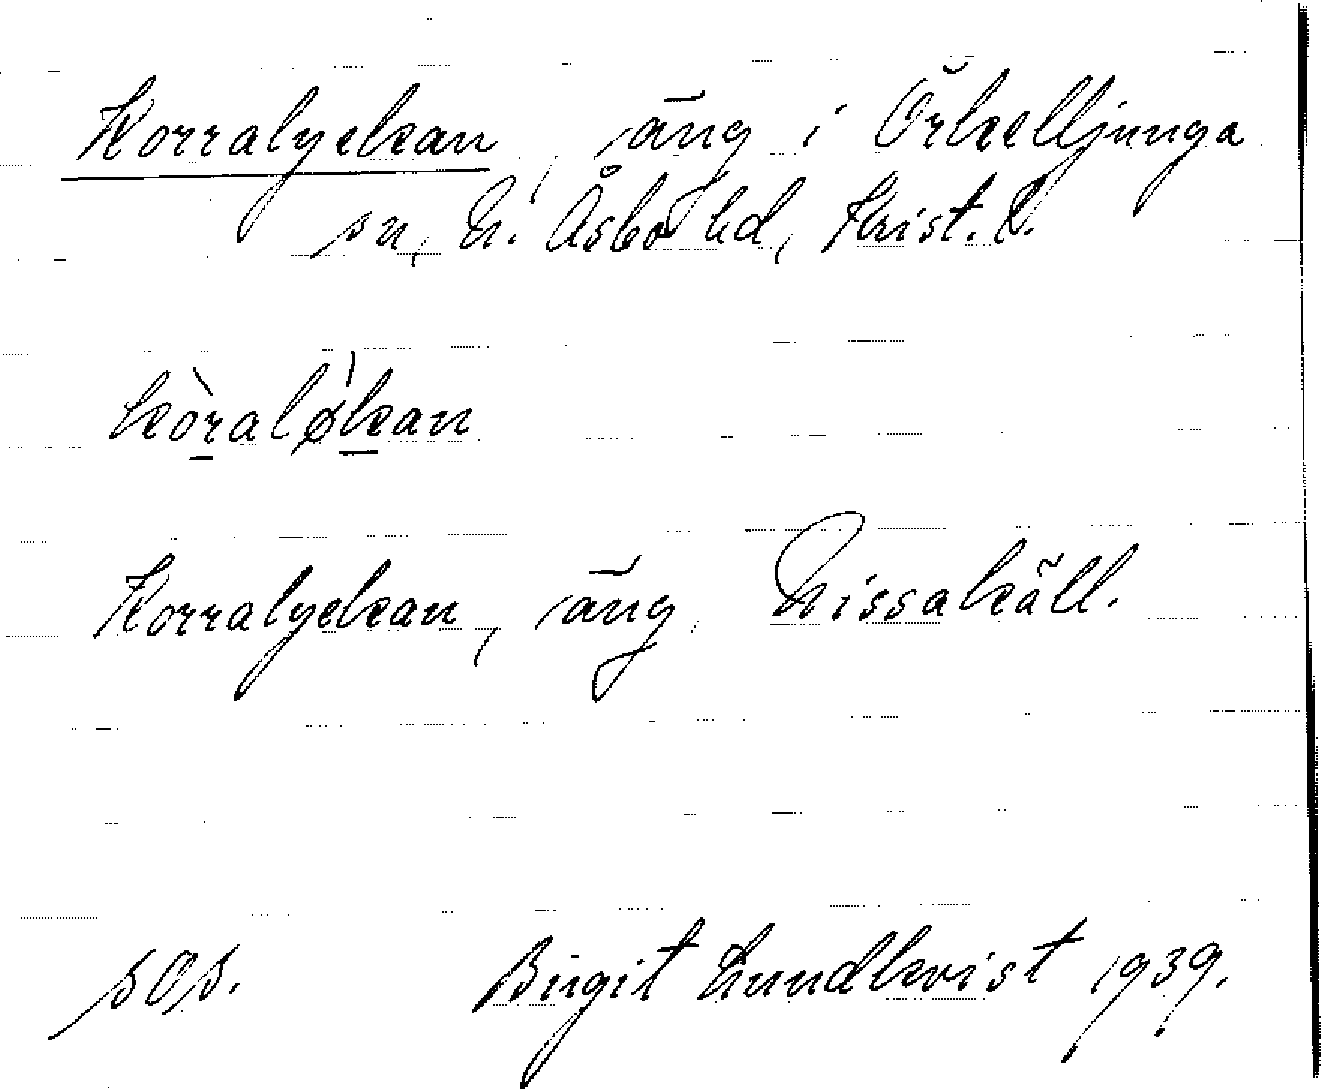 Korralyckan, äng i Örkelljunga
sn, N. Åsbo hd, Krist. l.
kòralø̀kan
Korralyckan, äng, Nissakäll.
sOs. Birgit Lundkvist 1939.